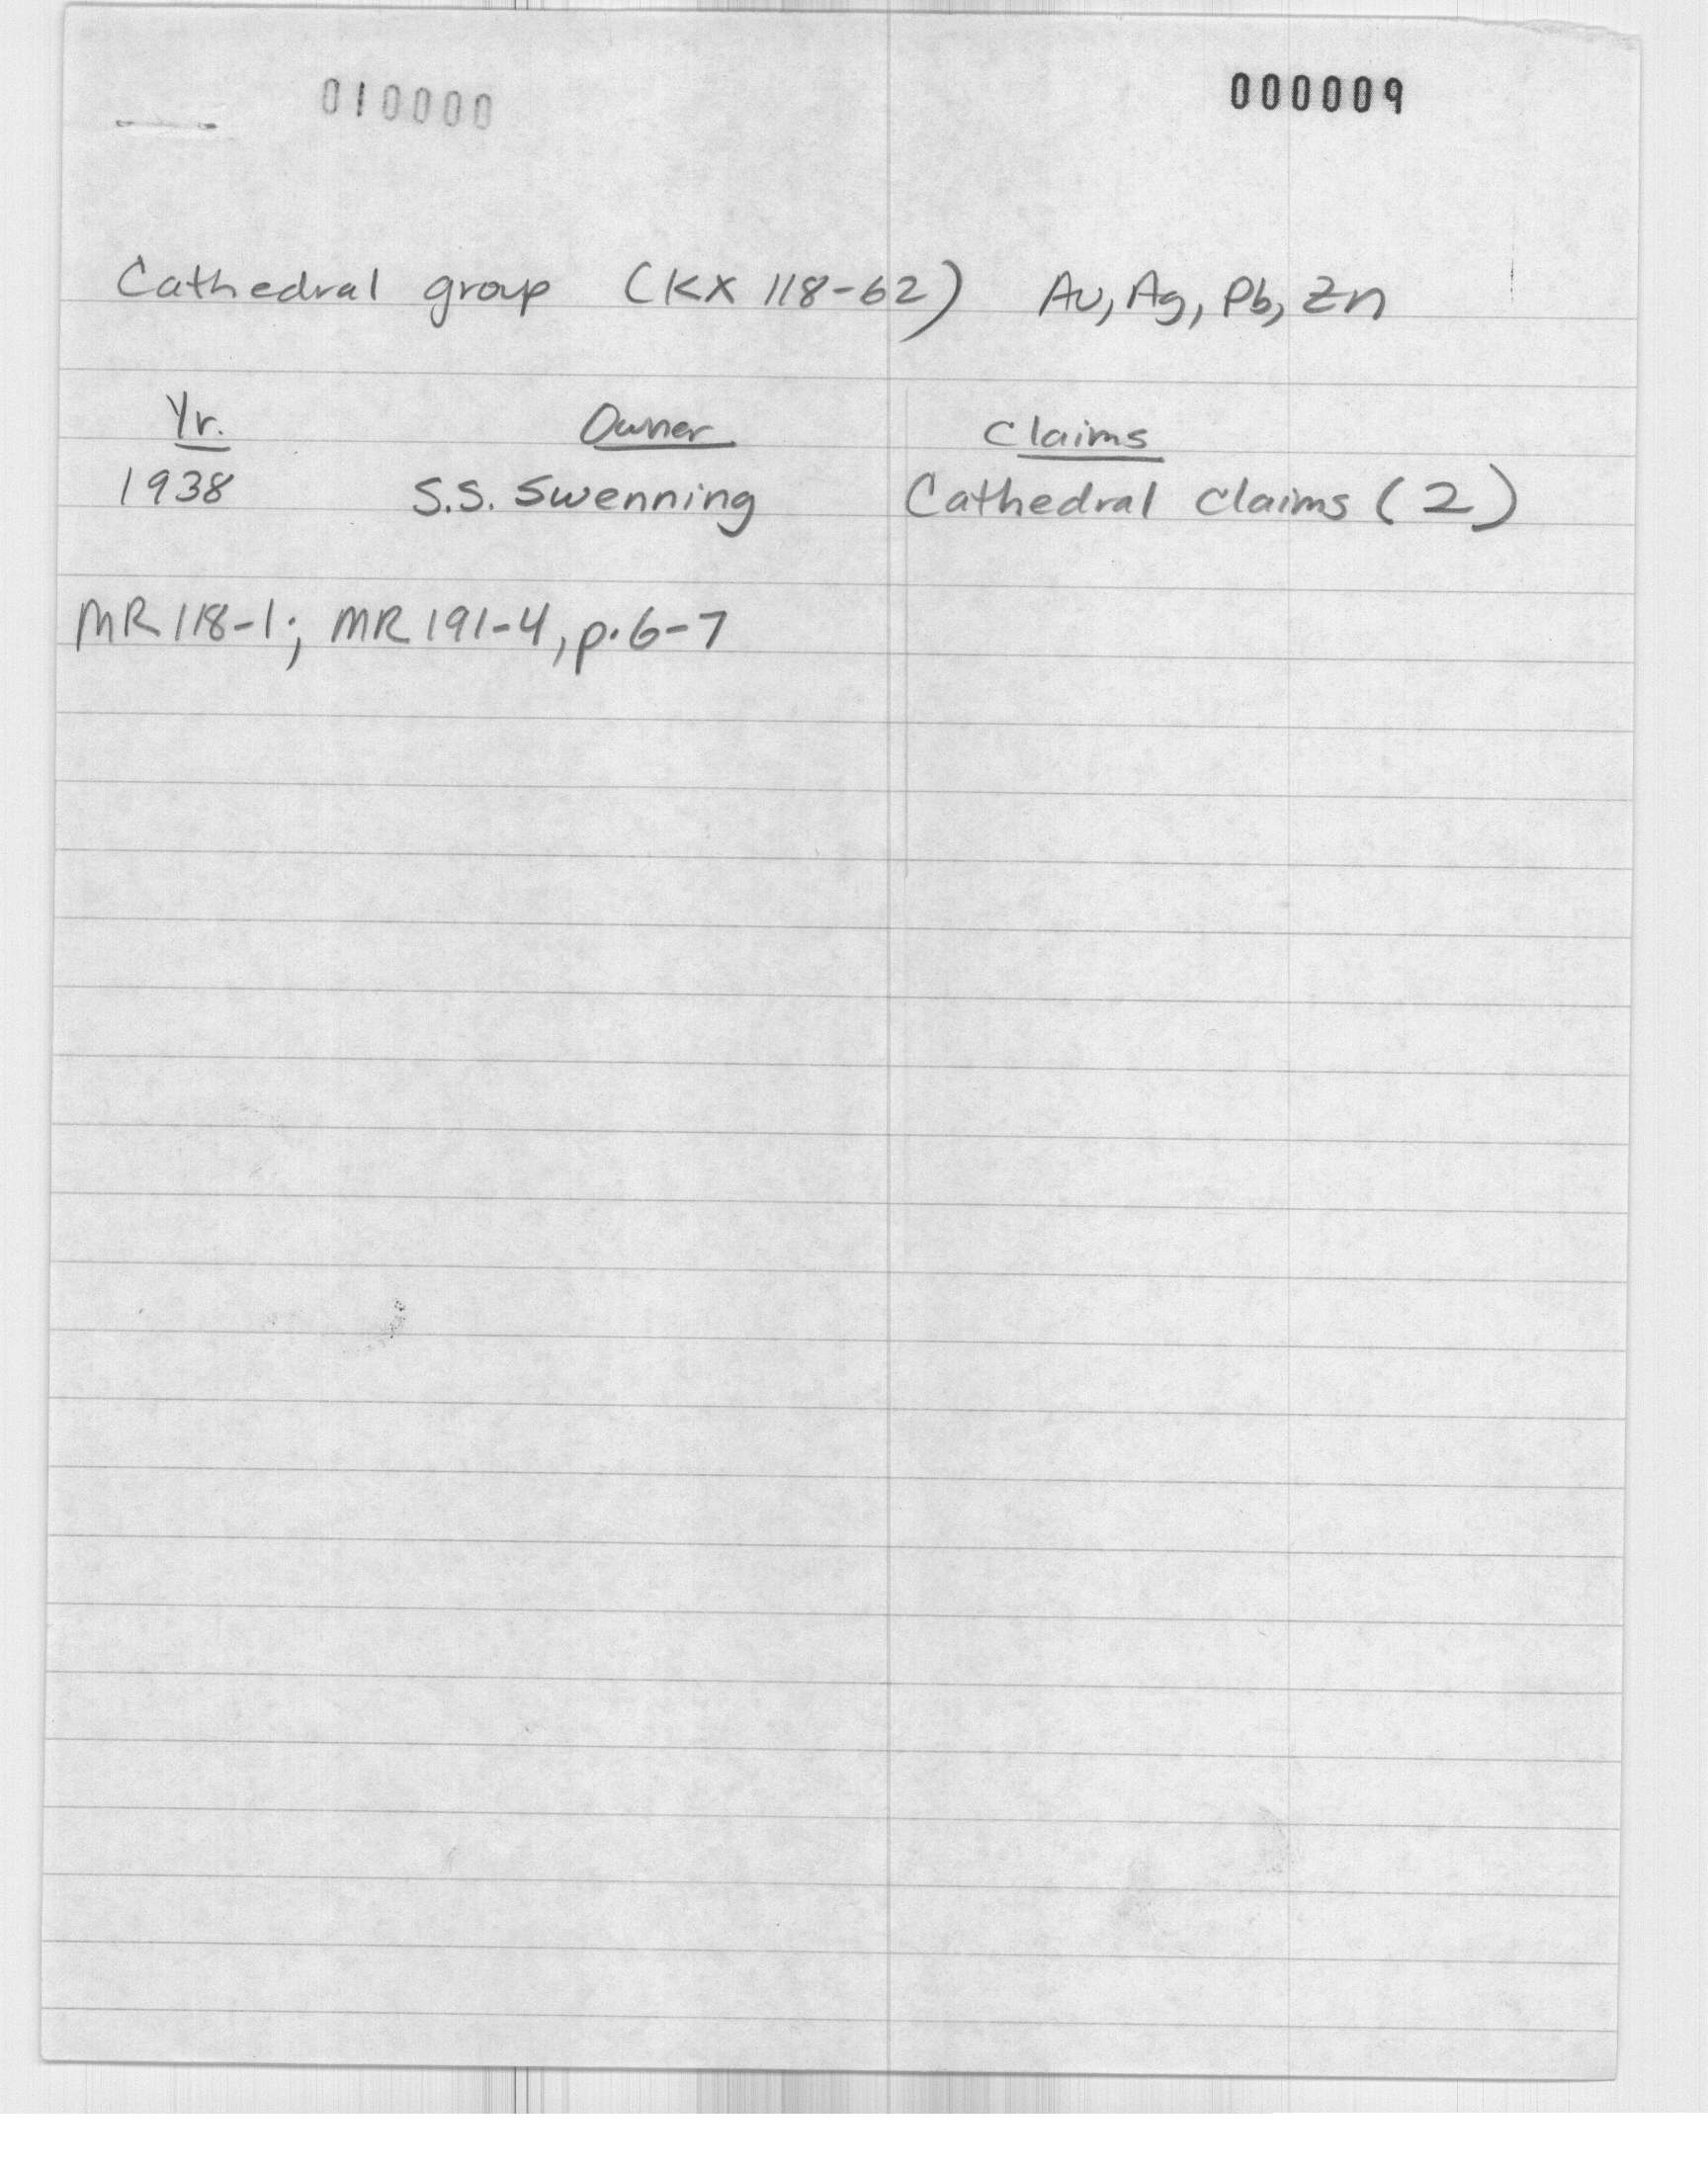 010000 000009
Cathedral group (KX 118-62) Au, Ag, Pb, Zn
Yr. Owner Claims
1938 S.S. Swenning Cathedral Claims (2)
MR 118-1; MR 191-4, p. 6-7